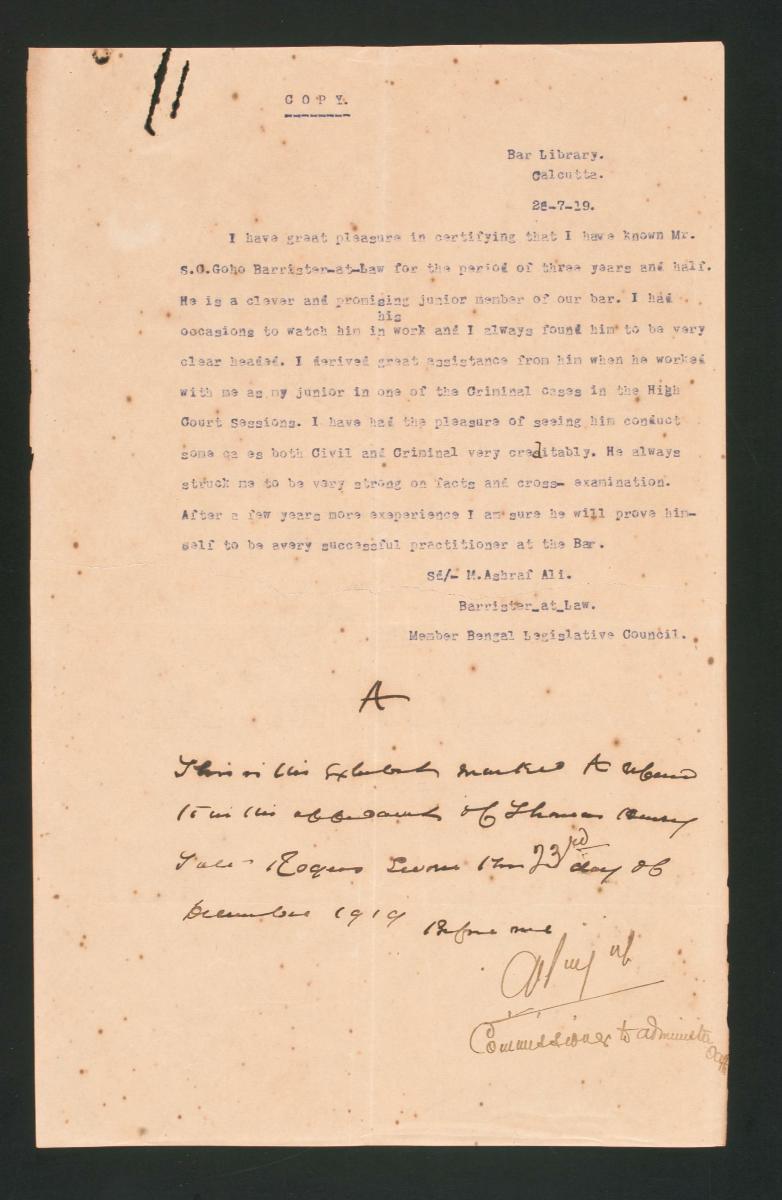 COPY.
Bar Library.
Calcutta.
28-7-19.
I have great pleasure in certifying that I have known Mr.
S.C.Goho Barrister-at-Law for the period of three years and half.
He is a clever and promising junior member of our bar. I had
his
occasions to watch him in work and I always found him to be very
clear headed. I derived great assistance from him when he worked
with me as my junior in one of the Criminal cases in the High
Court Sessions. I have had the pleasure of seeing him conduct
some ca es both Civil and Criminal very creditably. He always
struck me to be very strong on facts and cross- examination.
After a few years more exeperience I am sure he will prove him-
self to be avery successful practitioner at the Bar.
Sd/- M.Ashraf Ali.
Barrister_at_Law.
Member Bengal Legislative Council.
A
This is the Exhibit marked A referred
to in the affidavit of Thomas Henry
Rogers Sworn this 23rd day of
December 1919
Before me
Commissioner to administer
Oaths